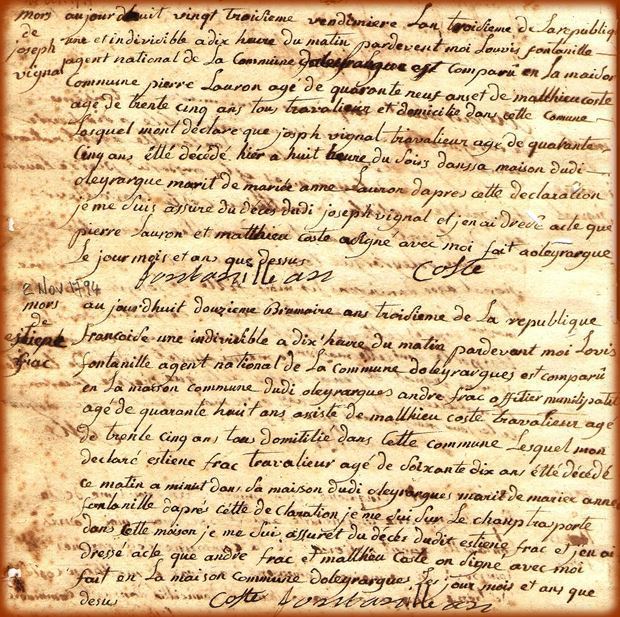 mors
de
joseph
vignal
aujourdhuit vingt troisieme vendimiere Lan troisieme de La republiq
une et indivisible a dix heure du matin pardevent moi Louvis fontanille
agent national de La Commune doleyrargue est comparû en La maison
Commune pierre Lauron agé de quarante neuf ans et de matthieu coste
agé de trente cinq ans tous travalieur et domicilie dans cette Comune
Lasquel mont déclare que joseph vignal travalieur age de quarante
Cinq ans étté décédé hier a huit heure du Soirs dans sa maison dudi
oleyrargue marit de mariée anne Lauron dapres cette declaration
je me suis assure du décès dudi joseph vignal et jen ai dresé acte que
pierre Lauron et matthieu coste a signé avec moi fait a oleyrargue
Le jour mois et ans que desus
fontanille an coste
2 Nov 1794
mors
de
estiene
frac
au jourdhuit douzieme Brumaire ans troisieme de La republique
francaise une indivisible a dix heure du matin pardevant moi Lovis
fontanille agent national de La Commune doleyrargues est comparû
en La maison commune dudi oleyrargues andre frac offitier munisipal et
agé de quarante huit ans asisté de matthieu coste travalieur agé
de trente cinq ans tous domitilié dans cette commune Lesquel mon
declaré estienc frac travalieur agé de Soixante dix ans étté décédé
ce matin a minut dans sa maison dudi oleyrargues marit de mariée anne
fontanille daprés cette declaration je me sui sur Le chanp trasporte
dans cette maison je me sui assuret du decès dudit estiene frac et jen ai
dressé acte que andre frac et matthieu Coste on signe avec moi
fait en La maison Commune doleyrargues Les jour mois et ans que
desus coste fontanille an